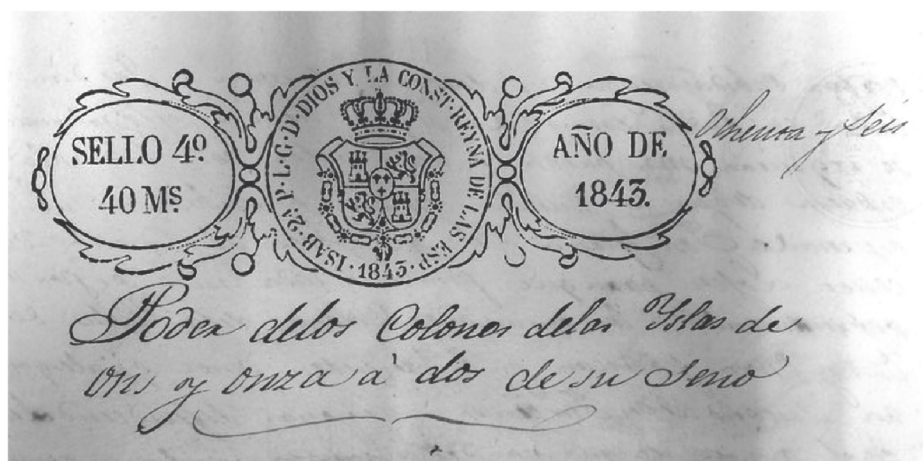 SELLO 4º
40 Mˢ
ISAB·2ª P·L·G·D·DIOS Y LA CONST·REYNA DE LAS ESP·
1843
AÑO DE
1843.
Ochenta y Seis
Poder delos Colonos delas Yslas de
ons y onza a dos de su seno